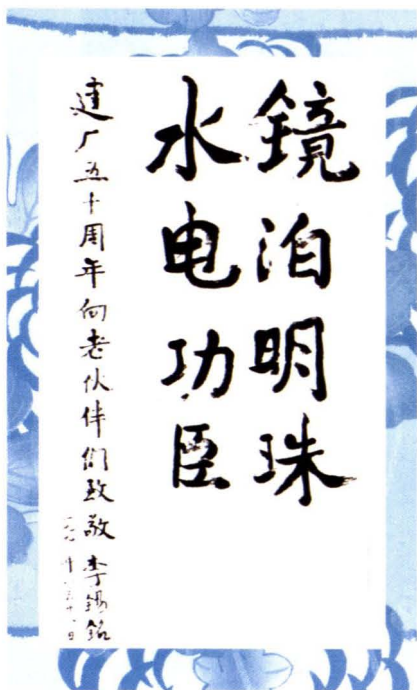 镜泊明珠
水电功臣
建厂五十周年向老伙伴们致敬 李锡铭